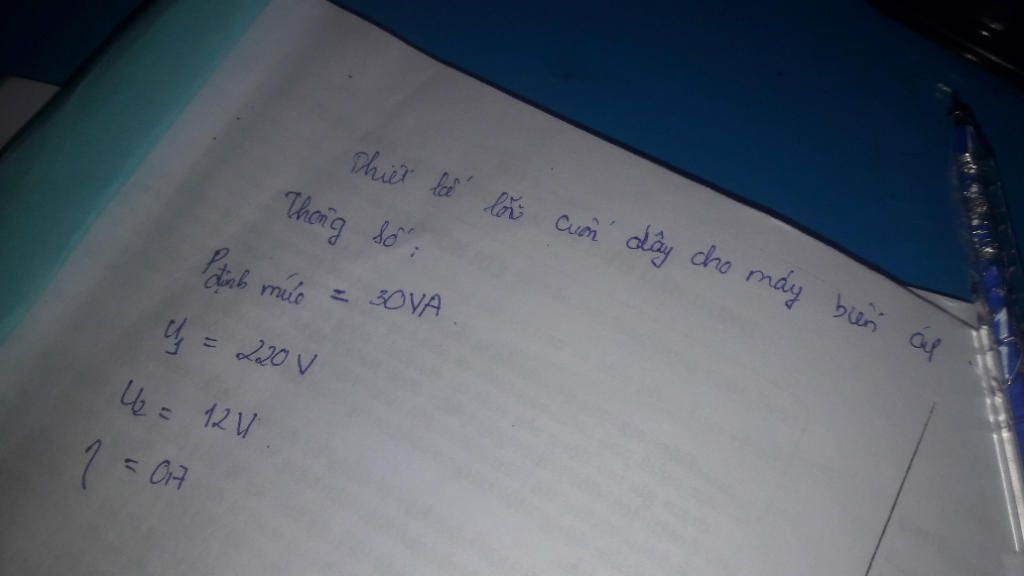 Thiết kế lõi cuốn dây cho máy biến áp.
Thông số:
P định mức = 30VA.
U1 = 220V
U2 = 12V.
η = 0,7